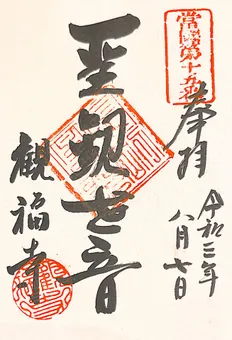 當國第十五番
奉拝
令和三年
八月七日
聖観世音
観福寺